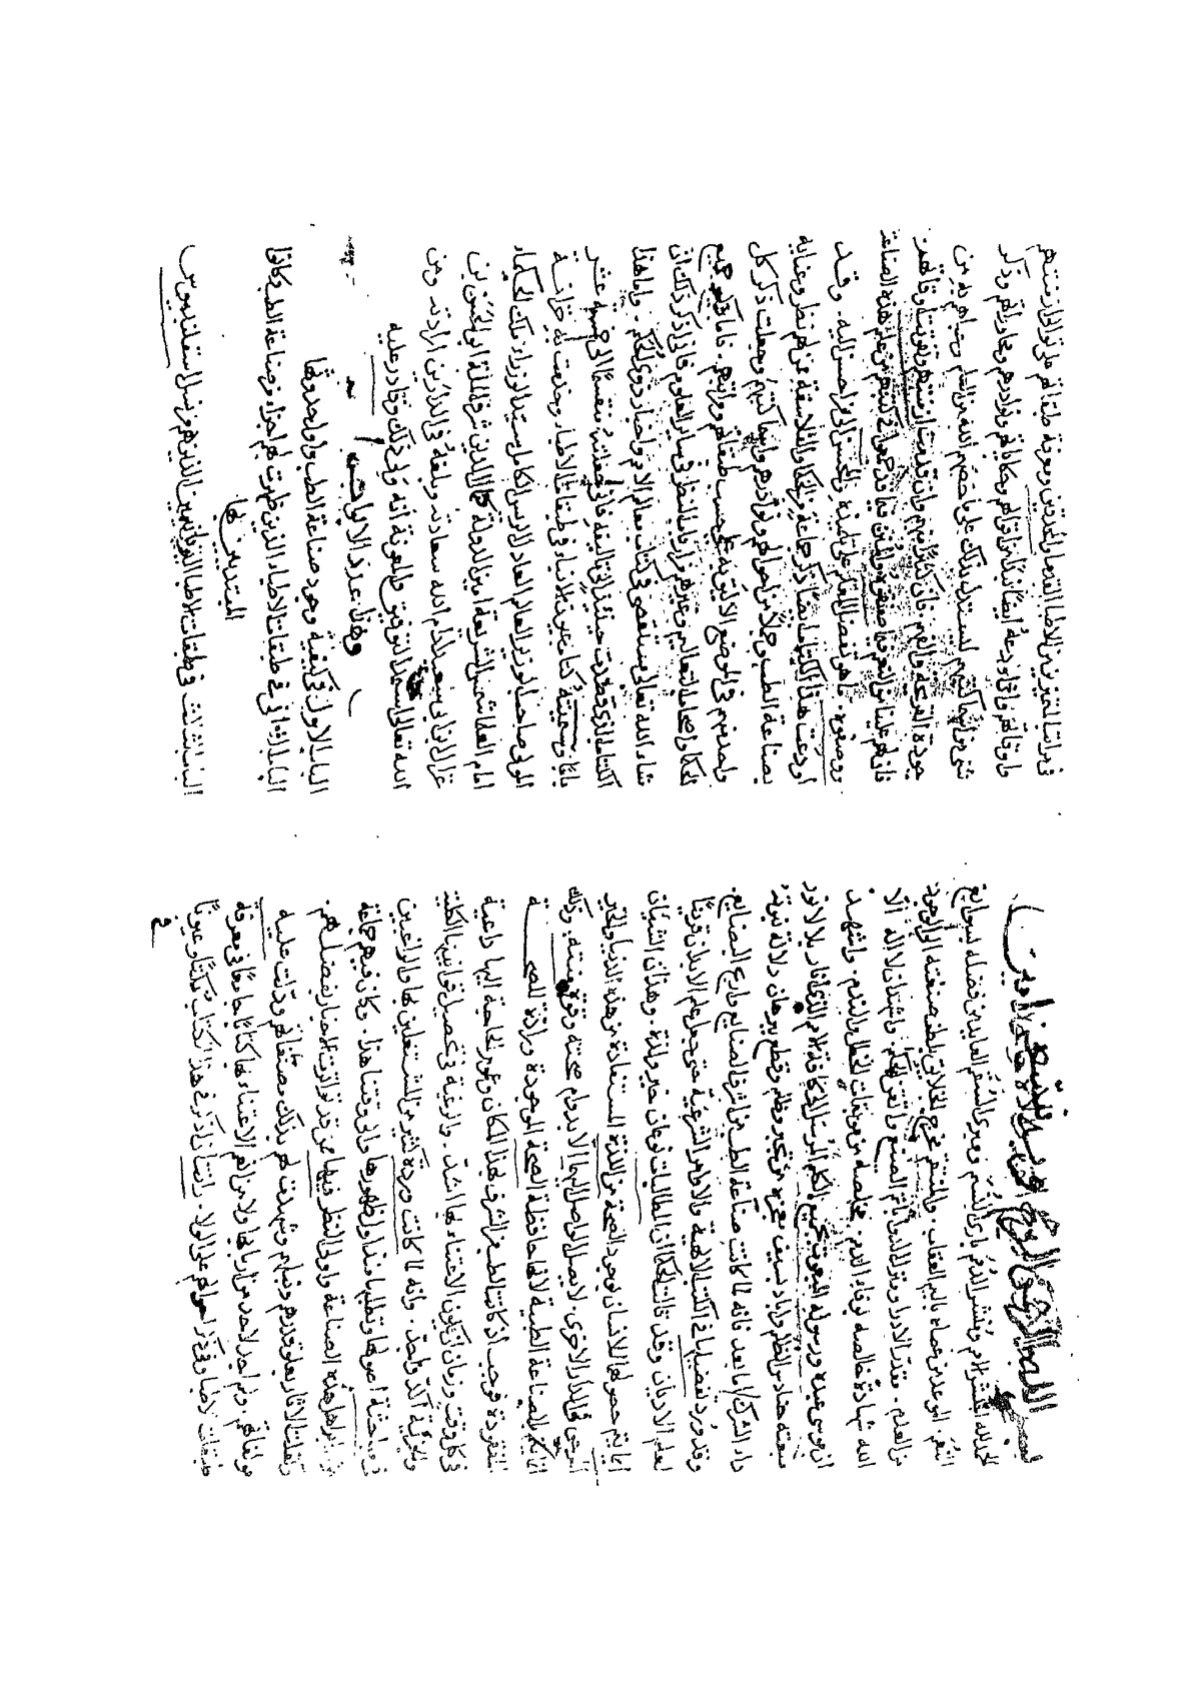 بسم الله الرحمن الرحيم
الحمد لله ناشر الامم ومنشر الرمم باري النسم ومبري السقم العايد من فضله بسوابغ
النعم. الموعد من عصاه باليم العقاب والنقم مخرج الخلائق بلطف صنعته الى الوجود
من العدم. مقدر الادوا ومنزل الدوا باتم الصنع واتقن الحكم. واشهد ان لا اله الا
الله شهادة خالصة بوفاء الذمم. مخلصة من موبقات الخطل والندم. واشهد
ان موسى عبده ورسوله المبعوث بجميع الكلم المرسل الى كافة الامم الذي انار بلالا نور
مبعثه حنادس الظلم واباد بسيف معجزه من تجبر وظلم وقطع ببرهان دلالة نبوته
داء الشرك اما بعد فانه لما كانت صناعة الطب من اشرف الصنايع واربح البضايع.
وقد ورد تفضيلها في الكتب الالهية والاوامر الشرعية حتى جعل علم الابدان قرينا
لعلم الاديان وقد قالت الحكما ان المطالب نوعان خير ولذة. وهذان الشيان
انما يتم حصولها للانسان بوجود الصحة من اللذة المستفادة من هذه الدنيا والخير
المرجى في الدار الاخرى. لا يصل الواصل اليهما الا بدوام صحته وقوة بنيته. وذلك
انما يتم بالصناعة الطبية لانها حافظة للصحة الموجودة ورادة للصحة
المفقودة فوجب اذ كانت الطب من الشرف بهذا المكان وعموم الحاجة اليها داعية
في كل وقت وزمان ان يكون الاعتناء بها اشد. والرغبة في تحصيل قوانينها الكلية
والجزئية آكد واجد. وانه لما كانت وردة كثير من المشتغلين بها والراغبين
في مباحثة اصولها وتطلبها منذ اول ظهورها والى وقتنا هذا. وكان فيهم جماعة
من اهل هذه الصناعة واولي النظر فيها ممن قد تواترت الاخبار بفضلهم.
ونقلت الاثار بعلو قدرهم ونبلهم وشهدت لهم بذلك مصنفاتهم ودلت عليه
مولفاتهم. ولم اجد لاحد من اربابها ولا من انعم الاعتناء بها كتابا جامعا في معرفة
طبقات الاطبا وفي ذكر احوالهم على الولا. رايت ان اذكر في هذا الكتاب نكتا وعيونا
في
في مراتب المتميزين من الاطبا القدما والمحدثين ومعرفة طبقاتهم على توالي ازمنتهم
واوقاتهم وان اودعه ايضا نبذا من اقوالهم وحكاياتهم ونوادرهم ومحاوراتهم وذكر
شي من اسما كتبهم ليستدل بذلك على ما خصهم الله من العلم وحباهم به من
جودة القريحة والفهم فان كثيرا منهم وان قدمت ازمنتهم وتفوتت اوقاتهم
فان لهم علينا من النعم فيما صنفوه والمنن فيما قد جمعوا في كتبهم من علم هذه الصناعة
ووضعوه. ما هو تفضل المعلم على تلميذه والمحسن الى من احسن اليه. وقد
اودعت هذا الكتاب ايضا ذكر جماعة من الحكما والفلاسفة ممن لهم نظر وعناية
بصناعة الطب وجملا من احوالهم ونوادرهم واسما كتبهم وجعلت ذكر كل
واحد منهم في الموضع الاليق به على حسب طبقاتهم ومراتبهم. فاما ذكر جميع
الحكما واصحاب التعاليم وغيرهم من ارباب النظر في ساير العلوم فاني اذكر ذلك ان
شاء الله تعالى مستقصى في كتاب معالم الامم واخبار ذوي الحكم. واما هذا
الكتاب الذي قصدت حينئذ الى تاليفه فاني جعلته منقسما الى خمسة عشر
بابا وسميته كتاب عيون الانباء في طبقات الاطباء وخدمت به خزانة
المولى صاحب الوزير العالم العادل الرئيس الكامل سيد الوزراء ملك الحكماء
امام العلماء شمس الشريعة امين الدولة كمال الدين شرف الملة ابي الحسن بن
غزال بن ابي سعيد ادام الله سعادته وبلغه في الدارين ارادته ومن
الله تعالى استمد التوفيق والمعونة انه ولي ذلك وقادر عليه
وهذا عدد الابواب
الباب الاول. في كيفية وجود صناعة الطب واول حدوثها
الباب الثاني في طبقات الاطباء الذين ظهرت لهم اجزاء من صناعة الطب وكانوا
المبتدئين بها
الباب الثالث في طبقات الاطبا اليونانيين الذين هم من نسل اسقلبيوس